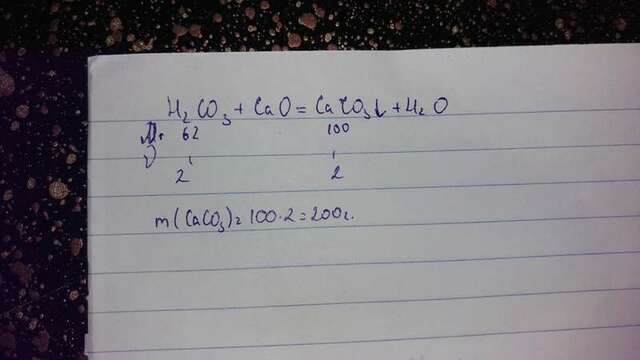 H₂CO₃ + CaO = CaCO₃↓ + H₂O
Mr 62 100
ν 1 1
2 2
m(CaCO₃) = 100·2 = 200г.